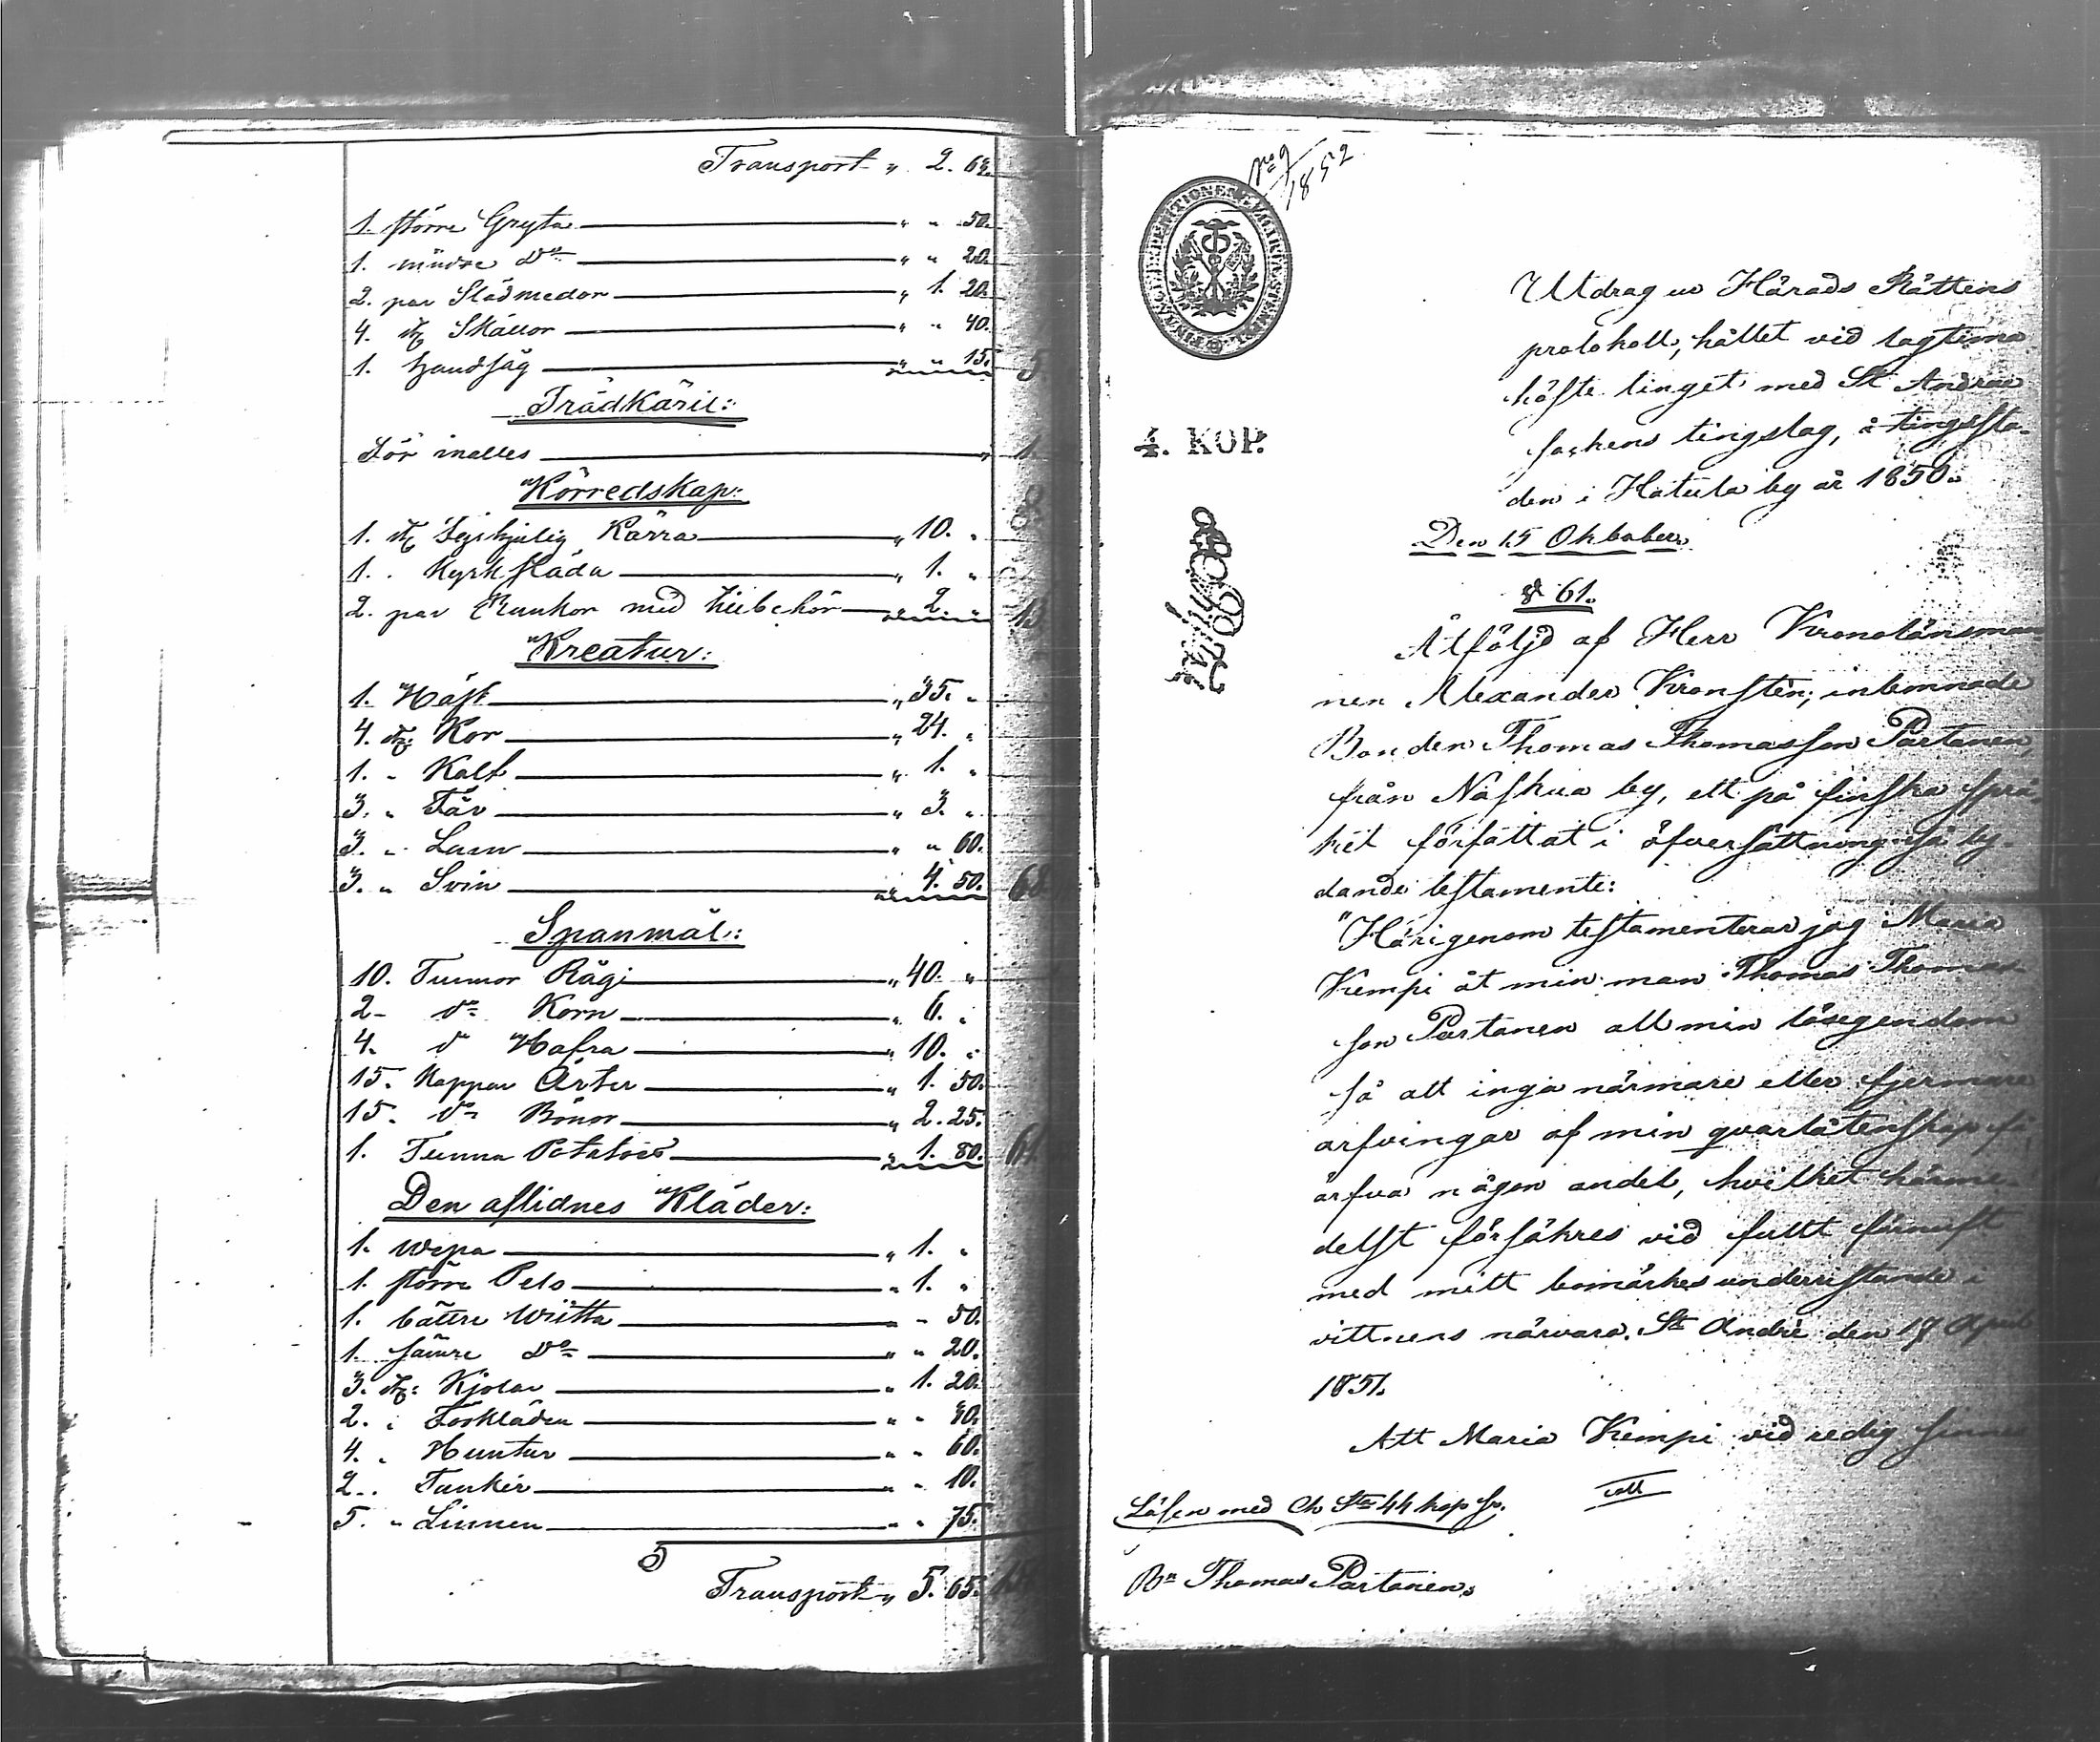 Transport " 2. 62.
1. större Gryta " " 50.
1. mindre Do " " 20.
2. par Slädmedor " 1. 20.
4. st Skällor " " 40.
1. handsåg " " 15. 5
Trädkäril:
För inalles " 1.
Körredskap: 8
1. st Kärra " 10. "
1. " Kyrksläda " 1. "
2. par Runkor med tillbehör " 2. " 13
Kreatur:
1. Häst " 35. "
4. st: Kor " 24. "
1. " Kalf " 1. "
3. " Får " 3. "
3. " Lam " " 60.
3. " Svin " 4. 50. 68
Spanmål:
10. Tunnor Råg " 40. "
2 - do Korn " 6. "
4. do Hafra " 10. "
15. Kappar Ärter " 1. 50.
15. do Bönor " 2. 25.
1. Tunna Potatoes " 1. 80. 61
Den aflidnes Kläder:
1. Wepa " 1. "
1. större Pels " 1. "
1. bättre Wiitta " " 50.
1. sämre Do " " 20.
3. st: Kjolar " 1. 20.
2. " Förkläden " " 30.
4. " Huntur " " 60.
2. " " " 10.
5. " Linnen " " 75.
5
Transport " 5. 65.
No 9/1852
FINANCE EXPEDITIONENS CHARTÆ STÄMPEL
4. KOP.
Utdrag ur Härads Rättens
protokoll, hållet vid lagtima
höste tinget med St Andræ
sockens tingslag, å tingssta-
den i Hatula by år 1850.
Den 15 Oktober.
§ 61.
Åtföljd af Herr Kronolänsman
nen Alexander Kronstén, inlemnade
Bonden Thomas Thomasson Partanen,
från Naskua by, ett på finska språ-
ket författat i öfversättning så ly-
dande testamente:
"Härigenom testamenterar jag Maria
Kempi åt min man Thomas Thomas-
son Partanen all min lösegendom
så att inga närmare eller fjermare
arfvingar af min qvarlåtenskap få
ärfva någon andel, hvilket härme-
delst försäkres vid fullt förnuft
med mitt bomärkes underristande i
vittnens närvaro. St André den 17 April
1851.
Att Maria Kempi vid redig sinne
att
Lösen med Ch Sta 44 kop Sr.
Bn Thomas Partanen.